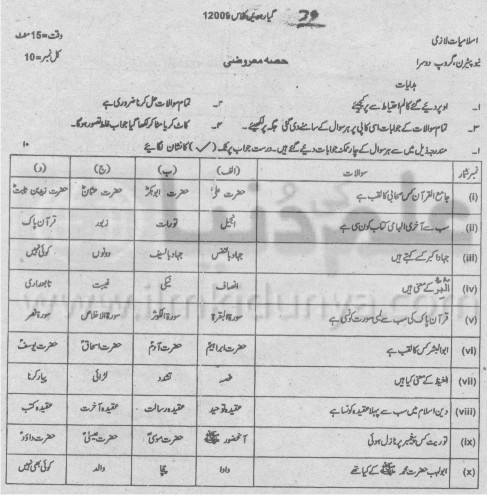 39
گیارھویں کلاس 12009
اسلامیات لازمی
وقت=15 منٹ
نیو پیٹرن، گروپ دوسرا
حصہ معروضی
کل نمبر=10
ہدایات
۱۔ اوپر دیئے گئے کالم احتیاط سے پر کیجئے
۲۔ تمام سوالات حل کرنا ضروری ہے
۳۔ تمام سوالات کے جوابات اسی کاپی پر ہر سوال کے سامنے دی گئی جگہ پر لکھیئے۔
۴۔ کاٹ کر یا مٹا کر لکھا گیا جواب غلط تصور ہوگا۔
۱۔ مندرجہ ذیل میں سے ہر سوال کے چار ممکنہ جوابات دیئے گئے ہیں۔ درست جواب پر ٹک (✓) کا نشان لگائیے ۱۰
نمبر شمار سوالات (الف) (ب) (ج) (د)
(i) جامع القرآن کس صحابی کا لقب ہے حضرت علیؓ حضرت ابوبکرؓ حضرت عثمانؓ حضرت زید بن ثابتؓ
(ii) سب سے آخری الہامی کتاب کون سی ہے انجیل تورات زبور قرآن پاک
(iii) جہاد اکبر کسے کہتے ہیں جہاد بالنفس جہاد بالسیف دونوں کوئی نہیں
(iv) البر کے معنی ہیں انصاف نیکی غیبت تابعداری
(v) قرآن پاک کی سب سے لمبی سورت کونسی ہے سورۃ البقرۃ سورۃ الکوثر سورۃ الاخلاص سورۃ النصر
(vi) ابوالبشر کس کا لقب ہے حضرت ابراہیمؑ حضرت آدمؑ حضرت اسحاقؑ حضرت یوسفؑ
(vii) الغیظ کے معنی کیا ہیں غصہ تشدد لڑائی پیار کرنا
(viii) دین اسلام میں سب سے پہلا عقیدہ کونسا ہے عقیدہ توحید عقیدہ رسالت عقیدہ آخرت عقیدہ کتب
(ix) توریت کس پیغمبر پر نازل ہوئی آنحضور ﷺ حضرت موسیٰؑ حضرت عیسیٰؑ حضرت داؤدؑ
(x) ابولہب حضرت محمد ﷺ کے کیا تھے دادا چچا والد کوئی بھی نہیں